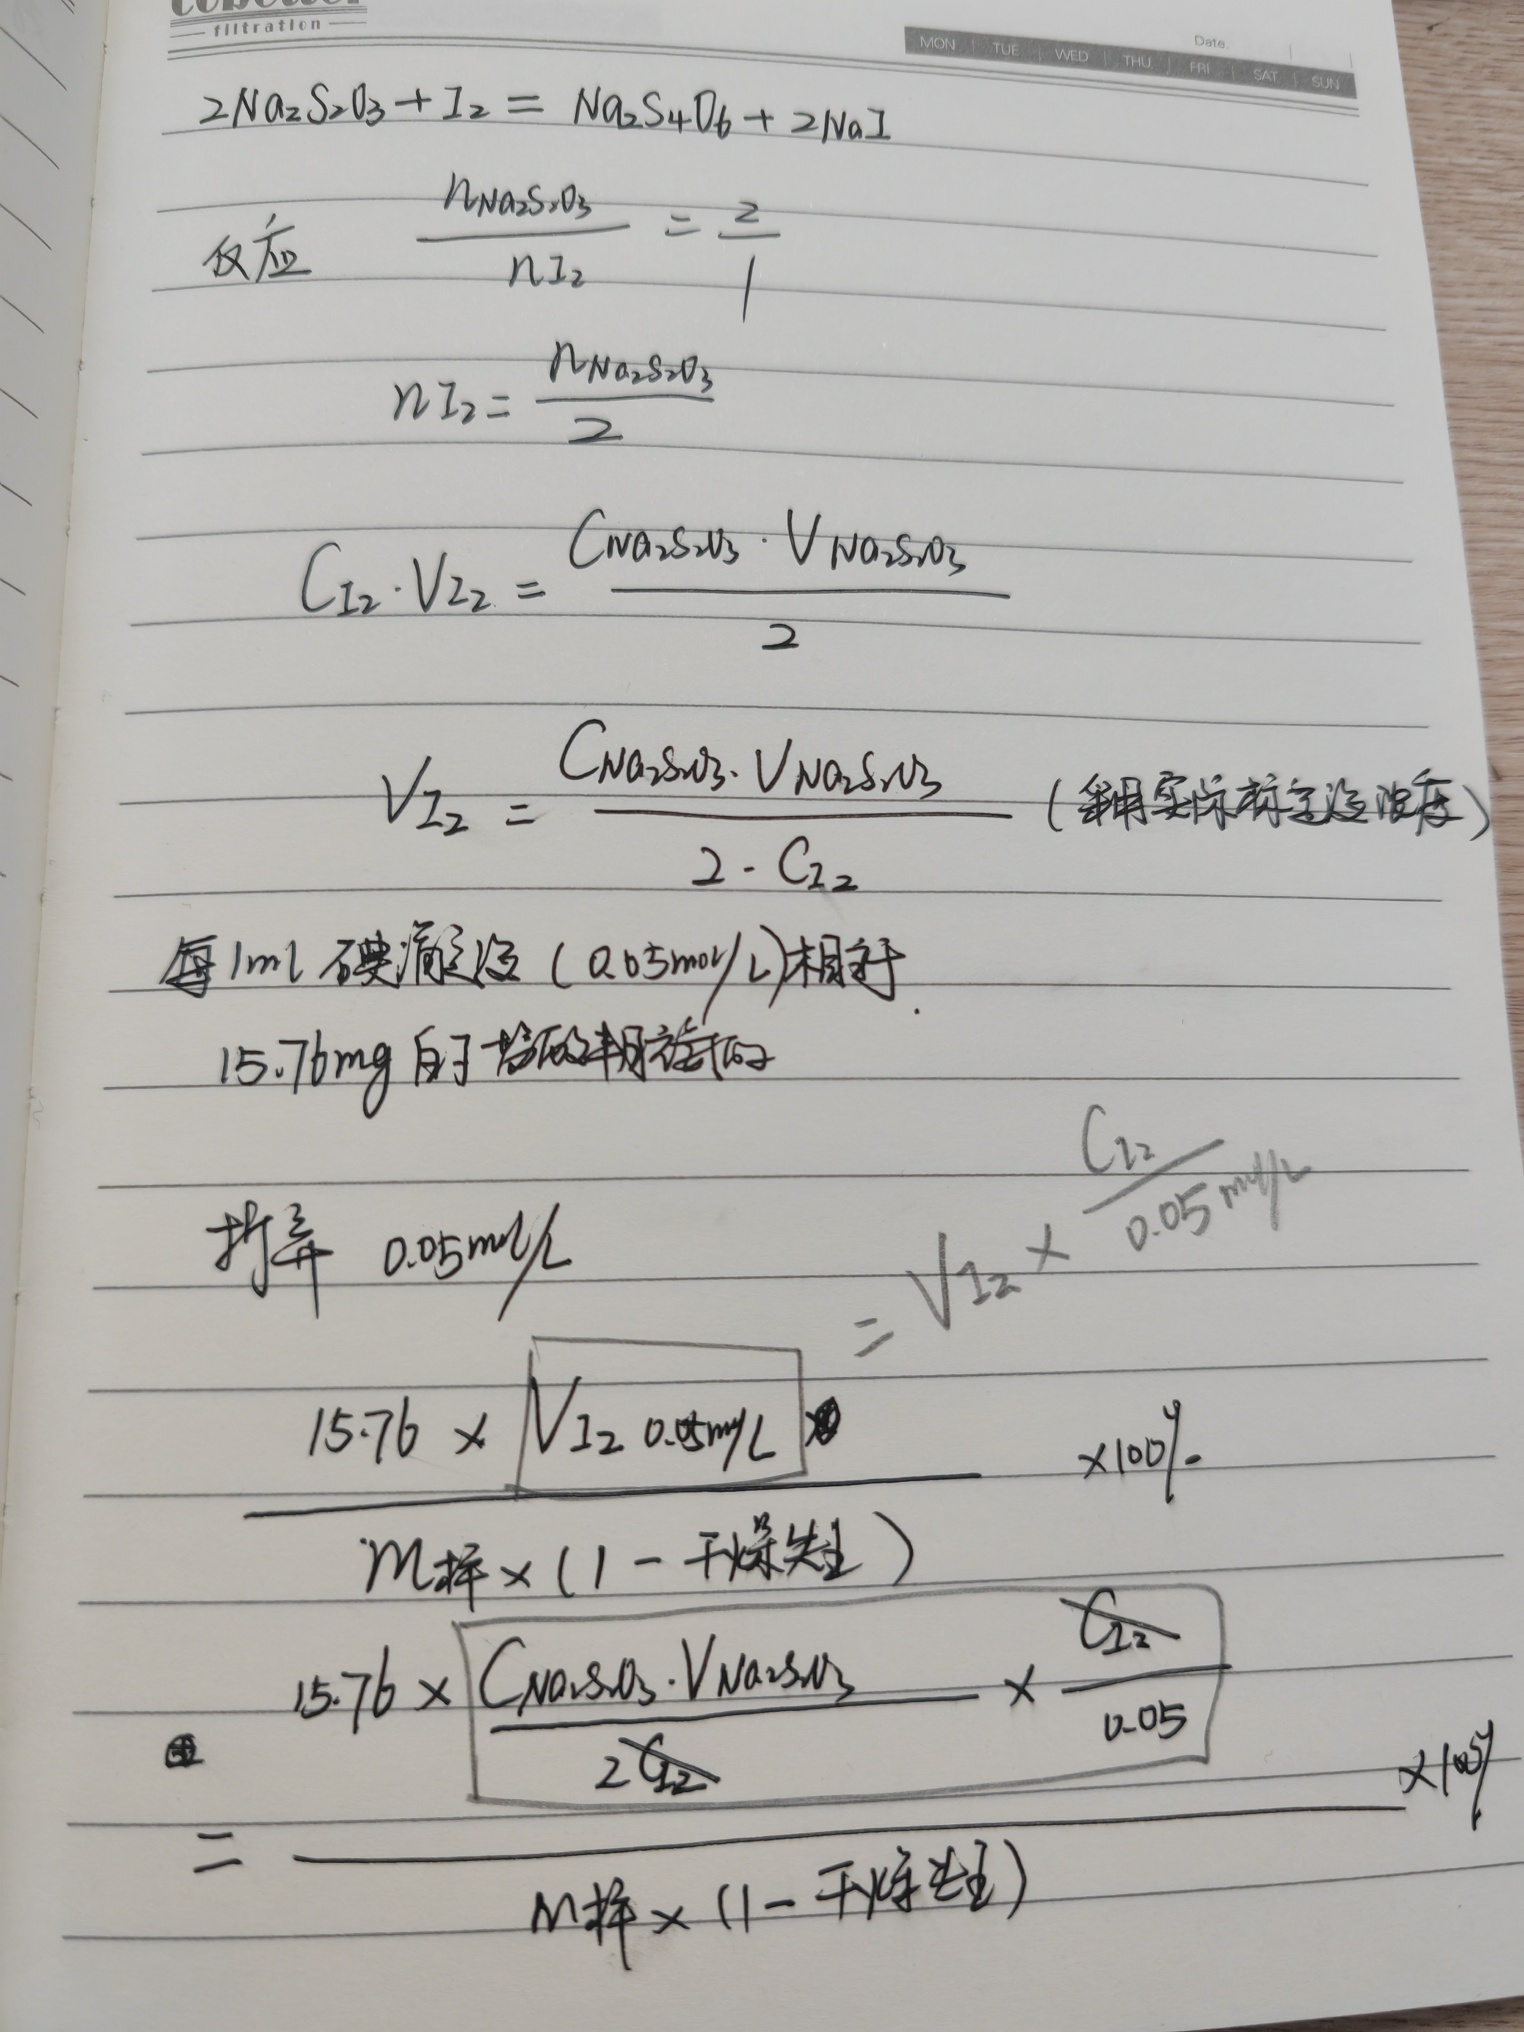 filtration
Date.
MON TUE WED THU FRI SAT SUN
2Na₂S₂O₃+I₂ = Na₂S₄O₆+2NaI
反应 nNa₂S₂O₃/nI₂ = 2/1
nI₂=nNa₂S₂O₃/2
CI₂·VI₂=CNa₂S₂O₃·VNa₂S₂O₃/2
VI₂ = CNa₂S₂O₃·VNa₂S₂O₃/2·CI₂ (采用实际标定液浓度)
每1ml碘滴定液(0.05mol/L)相当于
15.76mg的
折算 0.05mol/L
= VI₂ × CI₂/0.05mol/L
15.76 × VI₂ 0.05mol/L ×100%
M样×(1-干燥失重)
15.76 × CNa₂S₂O₃·VNa₂S₂O₃/2CI₂ × CI₂/0.05
= ×100%
M样×(1-干燥失重)